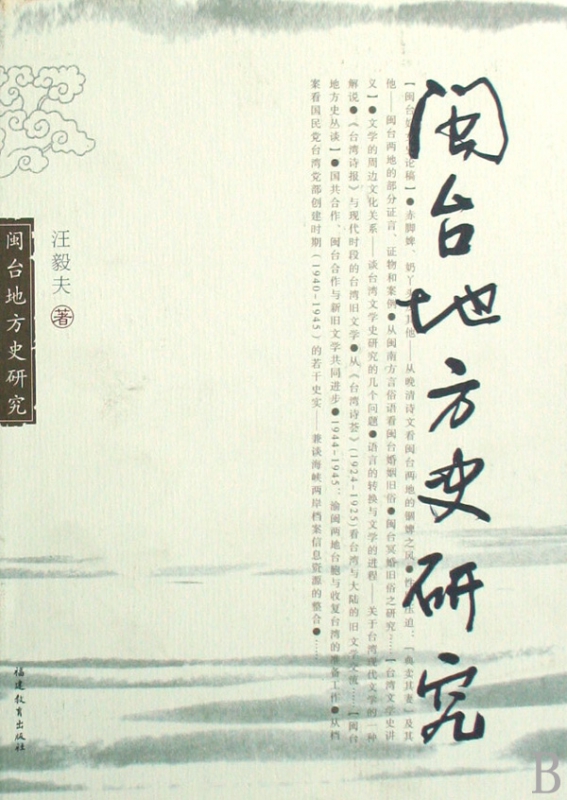 闽台地方史研究
【闽台
论稿】●赤脚婢、奶丫
其他——从晚清诗文看闽台两地的锢婢之风●
压迫：「典卖其妻」及其
他——闽台两地的部分证言、证物和案例●从闽南方言俗语看闽台婚姻旧俗●闽台冥婚旧俗之研究……【台湾文学史讲
义】●文学的周边文化关系——谈台湾文学史研究的几个问题●语言的转换与文学的进程——关于台湾现代文学的一种
解说●《台湾诗报》与现代时段的台湾旧文学●从《台湾诗荟》(1924-1925)看台湾与大陆的旧文学交流……【闽台
地方史丛谈】●国共合作、闽台合作与新旧文学共同进步●1944-1945：渝闽两地台胞与收复台湾的准备工作●从档
案看国民党台湾党部创建时期（1940-1945）的若干史实——兼谈海峡两岸档案信息资源的整合●……
汪毅夫 著
闽台地方史研究
福建教育出版社
B